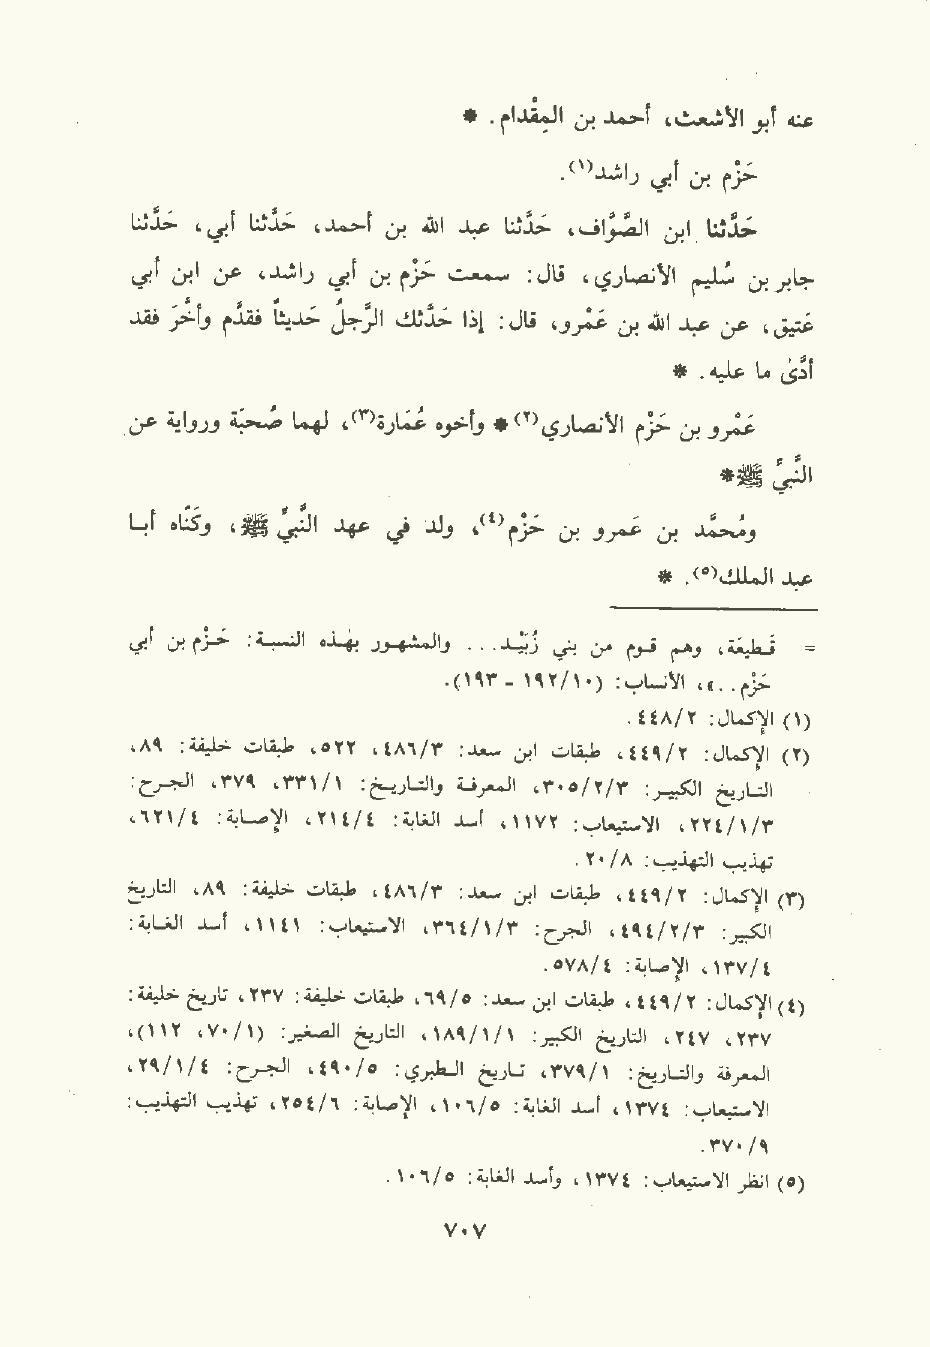 عنه أبو الأشعث، أحمد بن المِقْدام. *
حَزْم بن أبي راشد(١).
حَدَّثنا ابن الصَّوَّاف، حَدَّثنا عبد الله بن أحمد، حَدَّثنا أبي، حَدَّثنا
جابر بن سُليم الأنصاري، قال: سمعت حَزْم بن أبي راشد، عن ابن أبي
عَتيق، عن عبد الله بن عَمْرو، قال: إذا حَدَّثك الرَّجلُ حَديثاً فقدَّم وأخَّرَ فقد
أدَّىٰ ما عليه. *
عَمْرو بن حَزْم الأنصاري(٢)* وأخوه عُمَارة(٣)، لهما صُحبَة ورواية عن
النَّبيِّ ﷺ*
ومُحمَّد بن عَمرو بن حَزْم(٤)، ولد في عهد النَّبيِّ ﷺ، وكَنَّاه أبا
عبد الملك(٥). *
= قَطيعَة، وهم قوم من بني زُبَيْد... والمشهور بهٰذه النسبة: حَزْم بن أبي
حَزْم..»، الأنساب: (١٩٢/١٠ - ١٩٣).
(١) الإكمال: ٤٤٨/٢.
(٢) الإكمال: ٤٤٩/٢، طبقات ابن سعد: ٤٨٦/٣، ٥٢٢، طبقات خليفة: ٨٩،
التاريخ الكبير: ٣٠٥/٢/٣، المعرفة والتاريخ: ٣٣١/١، ٣٧٩، الجرح:
٢٢٤/١/٣، الاستيعاب: ١١٧٢، أسد الغابة: ٢١٤/٤، الإصابة: ٦٢١/٤،
تهذيب التهذيب: ٢٠/٨.
(٣) الإكمال: ٤٤٩/٢، طبقات ابن سعد: ٤٨٦/٣، طبقات خليفة: ٨٩، التاريخ
الكبير: ٤٩٤/٢/٣، الجرح: ٣٦٤/١/٣، الاستيعاب: ١١٤١، أسد الغابة:
١٣٧/٤، الإصابة: ٥٧٨/٤.
(٤) الإكمال: ٤٤٩/٢، طبقات ابن سعد: ٦٩/٥، طبقات خليفة: ٢٣٧، تاريخ خليفة:
٢٣٧، ٢٤٧، التاريخ الكبير: ١٨٩/١/١، التاريخ الصغير: (٧٠/١، ١١٢)،
المعرفة والتاريخ: ٣٧٩/١، تاريخ الطبري: ٤٩٠/٥، الجرح: ٢٩/١/٤،
الاستيعاب: ١٣٧٤، أسد الغابة: ١٠٦/٥، الإصابة: ٢٥٤/٦، تهذيب التهذيب:
٣٧٠/٩.
(٥) انظر الاستيعاب: ١٣٧٤، وأسد الغابة: ١٠٦/٥.
٧٠٧